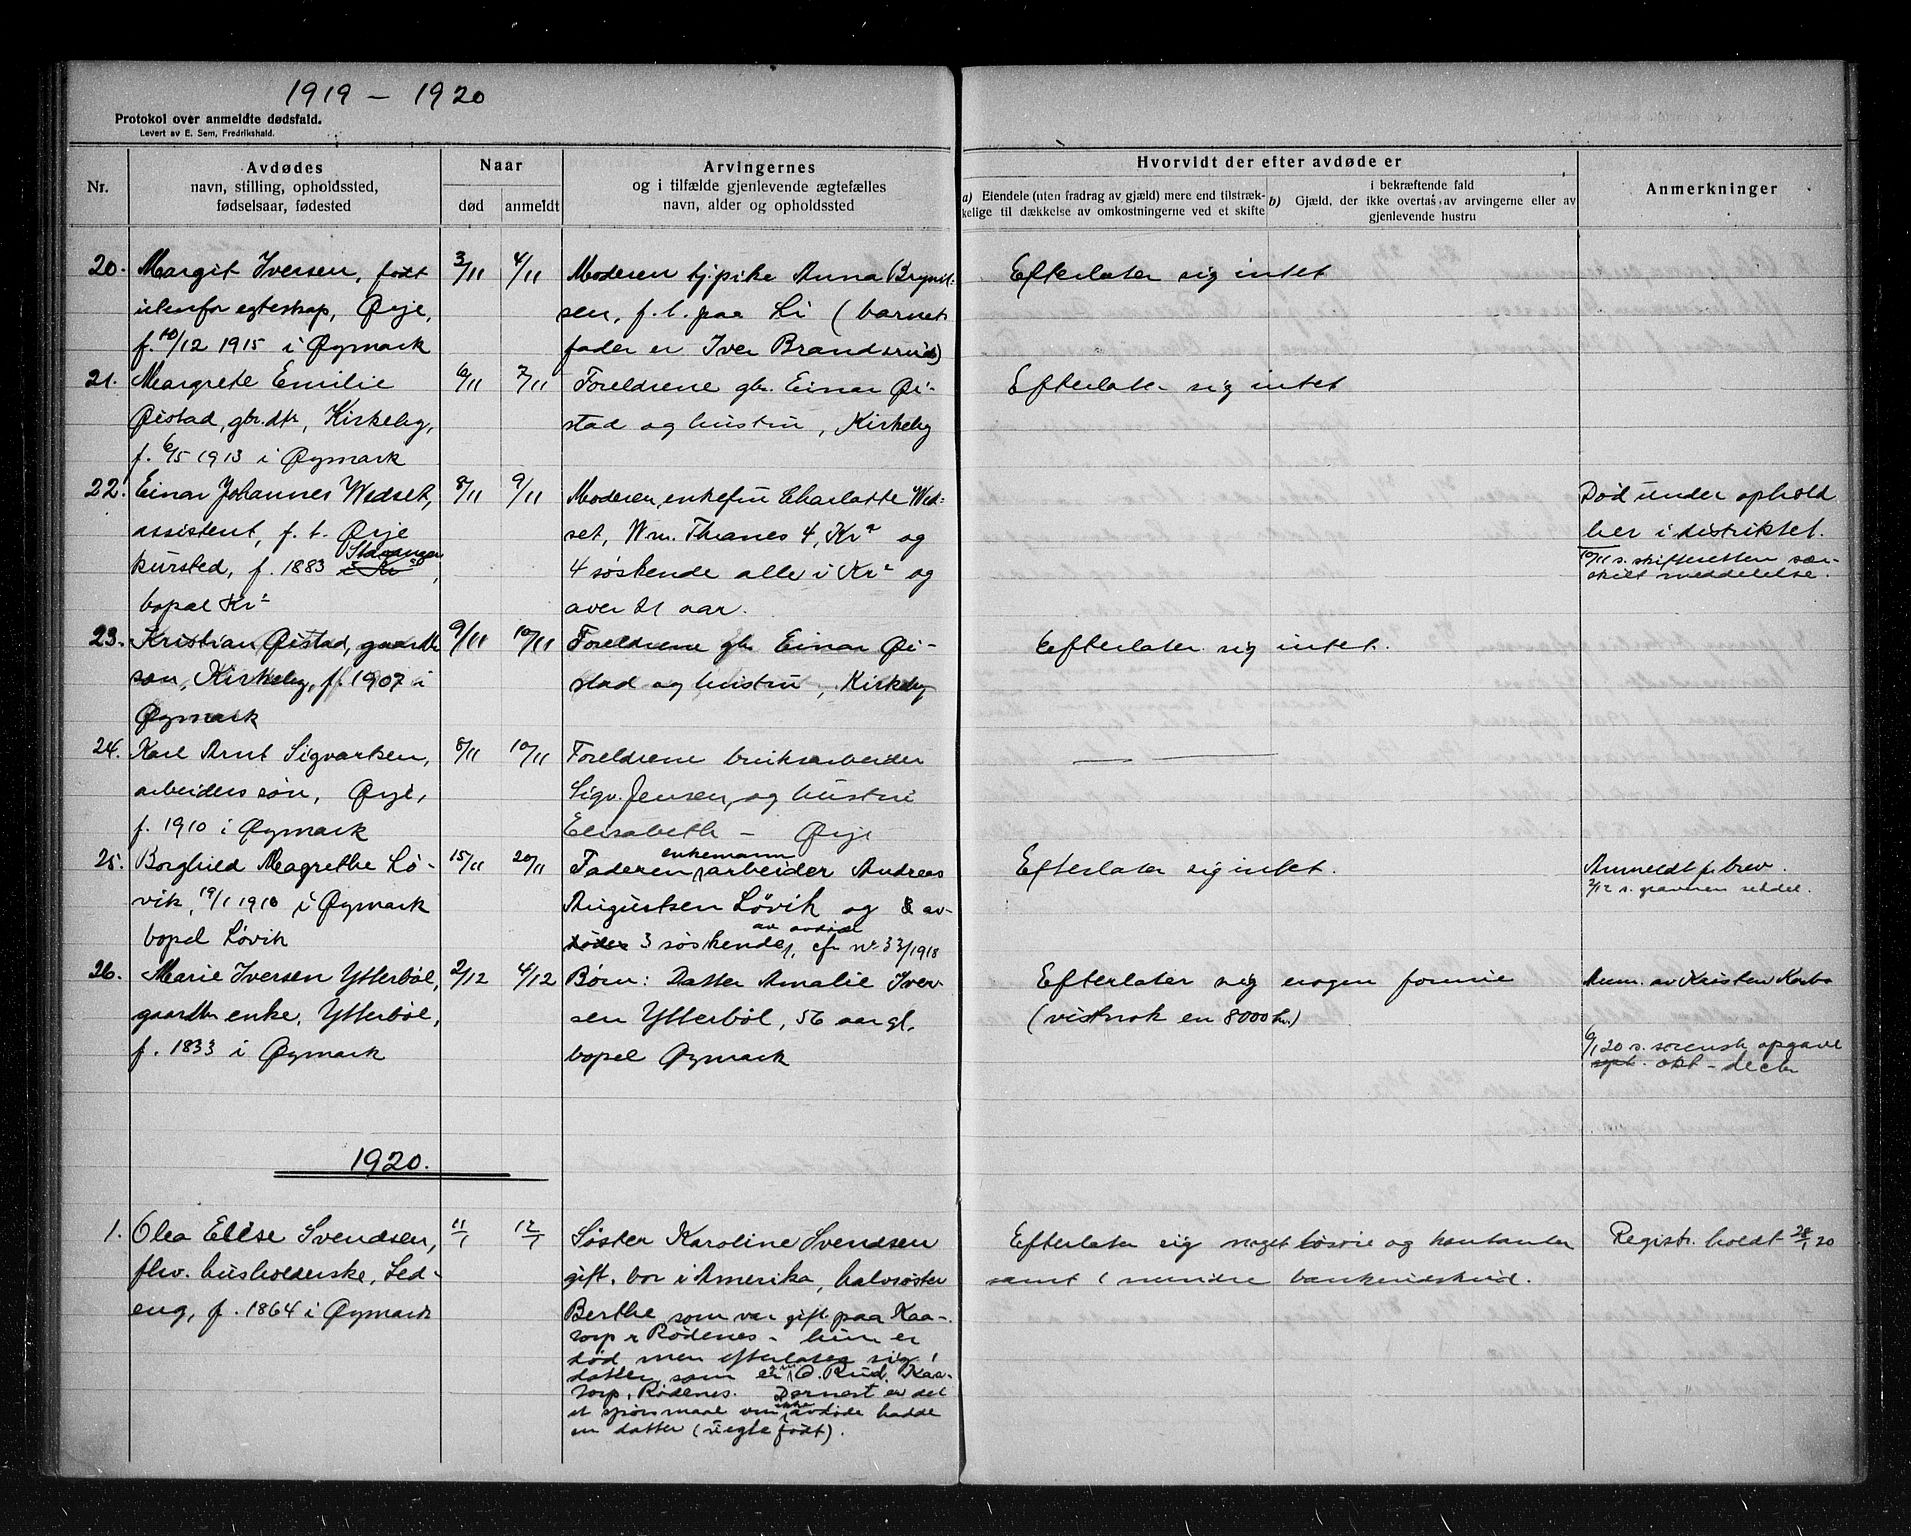 1919 – 1920
Protokol over anmeldte dødsfald.
Levert av E. Sem, Fredrikshald.
Nr.
Avdødes
navn, stilling, opholdssted,
fødselsaar, fødested
Naar
død
anmeldt
Arvingernes
og i tilfælde gjenlevende ægtefælles
navn, alder og opholdssted
Hvorvidt der efter avdøde er
a) Eiendele (uten fradrag av gjæld) mere end tilstræk-
kelige til dækkelse av omkostningerne ved et skifte
i bekræftende fald
b) Gjæld, der ikke overtas av arvingerne eller av
gjenlevende hustru
Anmerkninger
20. Margit Iversen, født
utenfor egteskap, Ørje,
f. 10/12 1915 i Øymark
3/11 4/11
Moderen tj.pike Anna Brynild-
sen, f. t. paa Li (barnets
fader er Iver Brandsrud)
Efterlater sig intet
21. Margrete Emilie
Øistad, gbr.dtr, Kirkeby,
f. 6/5 1913 i Øymark
6/11 7/11
Foreldrene gbr. Einar Øi-
stad og hustru, Kirkeby
Efterlater sig intet
22. Einar Johannes Wedset,
assistent, f. t. Ørje
kursted, f. 1883 i Kra Stavanger,
bopæl Kra
8/11 9/11
Moderen, enkefru Charlotte Wed-
set, Wm. Thranes 4, Kra og
4 søskende alle i Kra og
over 21 aar.
Død under ophold
her i distriktet.
10/11 s. skifteretten sær-
skilt meddelelse.
23. Kristian Øistad, gaardbr
søn, Kirkeby, f. 1907 i
Øymark
9/11 10/11
Foreldrene gbr Einar Øi-
stad og hustru, Kirkeby
Efterlater sig intet.
24. Karl Arnt Sigvartsen,
arbeiders søn, Ørje,
f. 1910 i Øymark
8/11 10/11
Foreldrene bruksarbeider
Sigv. Jensen, og hustru
Elisabeth – Ørje
— —
25. Borghild Magrethe Lø-
vik, 19/1 1910 i Øymark
bopel Løvik
15/11 20/11
Faderen, enkemann arbeider Andreas
Augustsen Løvik og av-
dødes 3 søskende av avdøde, cfr No 33/1918
Efterlater sig intet.
Anmeldt pr. brev.
2/12 s. gravmen seddel.
26. Marie Iversen Ytterbøl,
gaardbr enke, Ytterbøl,
f. 1833 i Øymark
2/12 4/12
Børn: Datter Amalie Iver-
sen Ytterbøl, 56 aar gl.
bopel Øymark
Efterlater sig nogen formue
(vistnok en 8000 kr.)
Anm. av Kristen Korbø
6/1 20 s. sorensk opgave
sept. okt – decbr
1920.
1. Olea Elise Svendsen,
fhv. husholderske, Led-
eng, f. 1864 i Øymark
11/1 12/1
Søster Karoline Svendsen
gift, bor i Amerika, halvsøster
Berthe som var gift paa Kaa-
torp i Rødenes – hun er
død men efterlater sig 1
datter som er g. m. O. Rud, Kaa-
torp, Rødenes. Dernest er det
et spørsmaal om ikke avdøde hadde
en datter (uegte født).
Efterlater sig noget løsøre og kontanter
samt 1 mindre bankindskud.
Registr. holdt 28/1 20